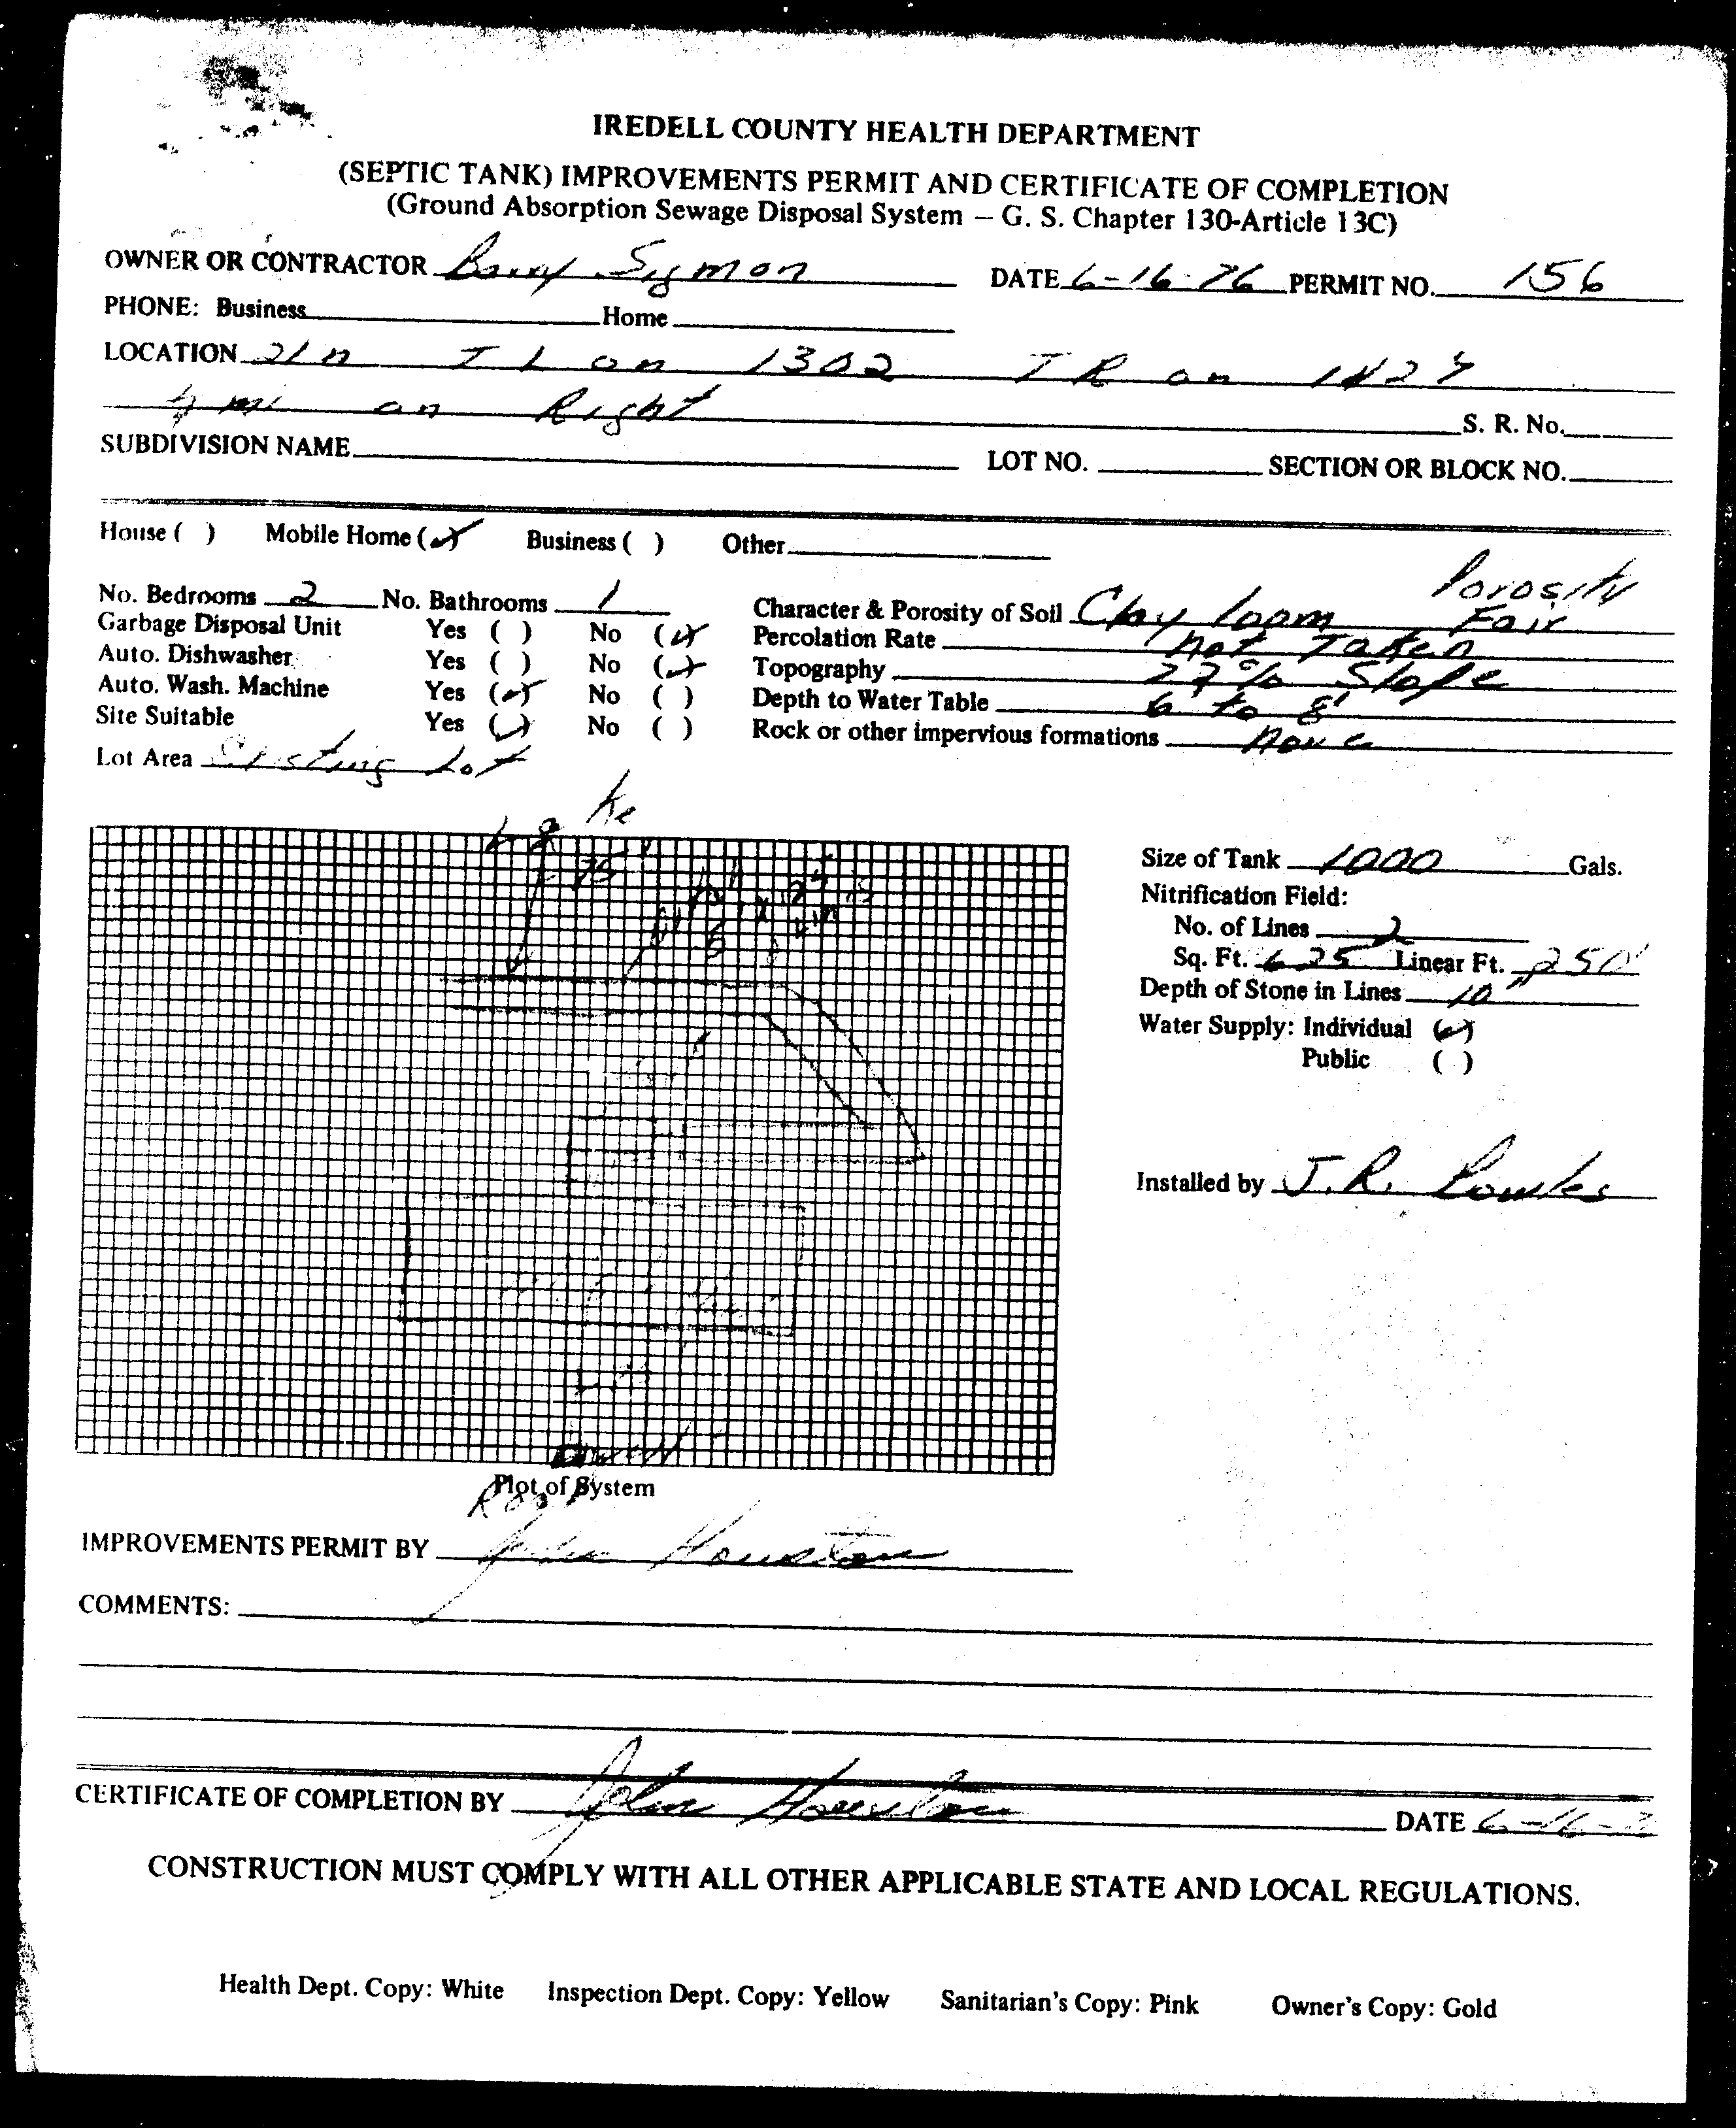 IREDELL COUNTY HEALTH DEPARTMENT
(SEPTIC TANK) IMPROVEMENTS PERMIT AND CERTIFICATE OF COMPLETION
(Ground Absorption Sewage Disposal System — G. S. Chapter 130-Article 13C)
OWNER OR CONTRACTOR Barry Sigmon DATE 6-16-76 PERMIT NO. 156
PHONE: Business Home
LOCATION 21 n T L on 1302 T R on
mi on Right S. R. No.
SUBDIVISION NAME LOT NO. SECTION OR BLOCK NO.
House ( ) Mobile Home (✓) Business ( ) Other
Porosity
No. Bedrooms 2 No. Bathrooms 1 Character & Porosity of Soil Clay loam Fair
Garbage Disposal Unit Yes ( ) No (✓) Percolation Rate not Taken
Auto. Dishwasher Yes ( ) No (✓) Topography % Slope
Auto. Wash. Machine Yes (✓) No ( ) Depth to Water Table 6 to 8'
Site Suitable Yes (✓) No ( ) Rock or other impervious formations none
Lot Area Existing Lot
Size of Tank 1000 Gals.
Nitrification Field:
No. of Lines 2
Sq. Ft. 625 Linear Ft. 250'
Depth of Stone in Lines 10"
Water Supply: Individual (✓)
Public ( )
Installed by J.R.
75
Plot of System
Road
IMPROVEMENTS PERMIT BY John Houston
COMMENTS:
CERTIFICATE OF COMPLETION BY John Houston DATE 6-16-
CONSTRUCTION MUST COMPLY WITH ALL OTHER APPLICABLE STATE AND LOCAL REGULATIONS.
Health Dept. Copy: White Inspection Dept. Copy: Yellow Sanitarian's Copy: Pink Owner's Copy: Gold